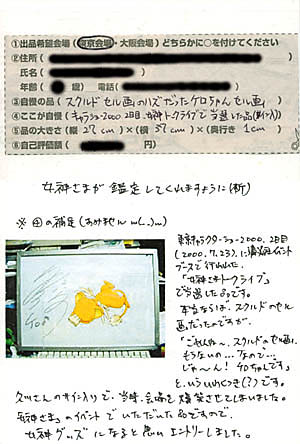 ①出品希望会場(東京会場・大阪会場)どちらかに○を付けてください
②住所(
氏名(
年齢( 歳) 電話(
③自慢の品(スクルド セル画のハズだったケロちゃんセル画)
④ここが自慢(キャラショー2000 2日目、女神トークライブで当選した品(サイン入り))
⑤品の大きさ(縦 27 cm)×(横 37 cm)×(奥行き 1 cm)
⑥自己評価額( 円)
女神さまが鑑定してくれますように(祈)
※④の補足
東京キャラクターショー2000、2日目
(2000.7.23)に
ブースで行われた、
「女神さまトークライブ」
で当選した品です。
本当ならば、スクルドのセル
画だったのですが、
「ごめんね~、スクルドのセル画
もうないの…なので…
じゃ~ん! ケロちゃんです」
といういわくつき(?)です。
久川さんのサイン入りで、当時、会場を爆笑させてしまいました。
女神さまっのイベントでいただいた品ですので、
女神グッズになると思いエントリーしました。